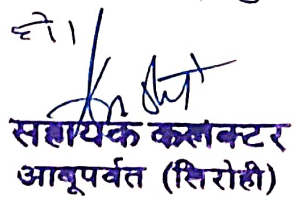 हो।
सहायक कलक्टर
आबूपर्वत (सिरोही)